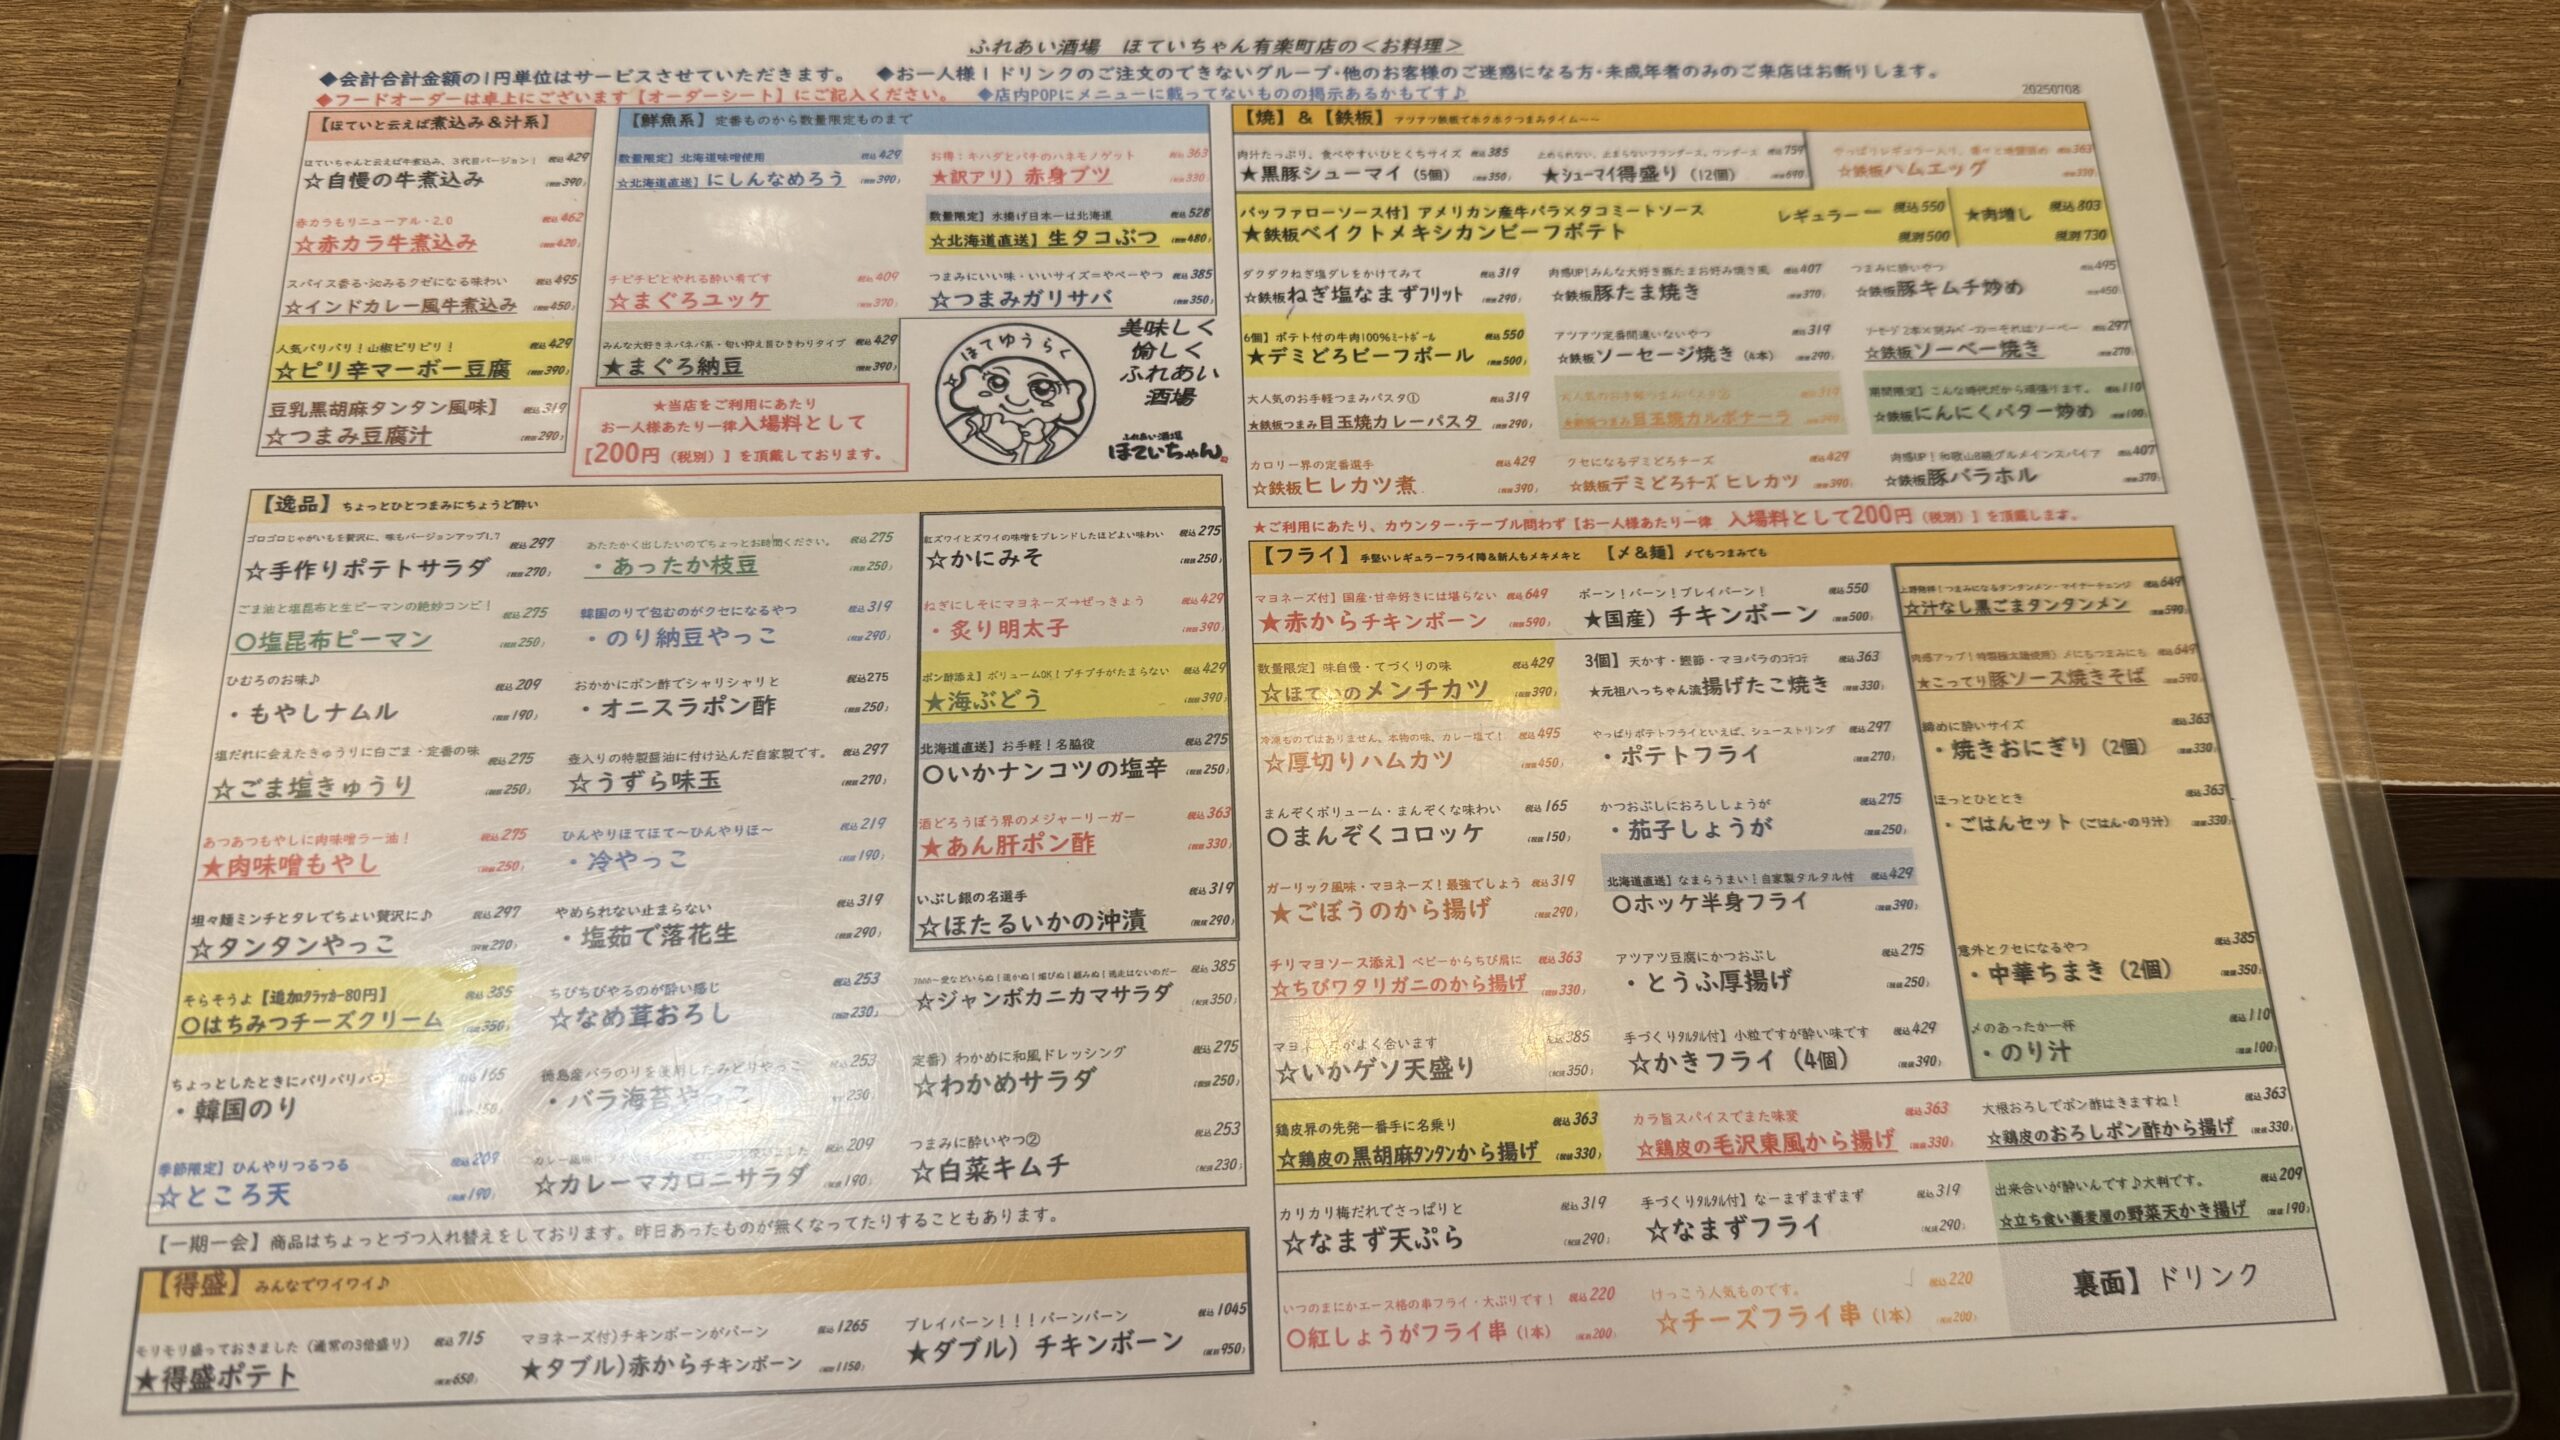 ふれあい酒場　ほていちゃん有楽町店の＜お料理＞
◆会計合計金額の1円単位はサービスさせていただきます。　◆お一人様1ドリンクのご注文のできないグループ・他のお客様のご迷惑になる方・未成年者のみのご来店はお断りします。
◆フードオーダーは卓上にございます【オーダーシート】にご記入ください。　◆店内POPにメニューに載ってないものの掲示あるかもです♪
20250708
【ほていと云えば煮込み＆汁系】
ほていちゃんと云えば牛煮込み、3代目バージョン！ 税込429
☆自慢の牛煮込み (税抜390)
赤カラもリニューアル・2.0 税込462
☆赤カラ牛煮込み (税抜420)
スパイス香る・沁みるクゼになる味わい 税込495
☆インドカレー風牛煮込み (税抜450)
人気バリバリ！山椒ピリピリ！ 税込429
☆ピリ辛マーボー豆腐 (税抜390)
豆乳黒胡麻タンタン風味】 税込319
☆つまみ豆腐汁 (税抜290)
【鮮魚系】定番ものから数量限定ものまで
数量限定】北海道味噌使用 税込429
☆北海道直送】にしんなめろう (税抜390)
お得：キハダとバチのハネモノゲット 税込363
★訳アリ）赤身ブツ (税抜330)
数量限定】水揚げ日本一は北海道 税込528
☆北海道直送】生タコぶつ (税抜480)
チビチビとやれる酔い肴です 税込409
☆まぐろユッケ (税抜370)
つまみにいい味・いいサイズ＝やべーやつ 税込385
☆つまみガリサバ (税抜350)
みんな大好きネバネバ系・匂い抑え目ひきわりタイプ 税込429
★まぐろ納豆 (税抜390)
★当店をご利用にあたり
お一人様あたり一律入場料として
【200円（税別）】を頂戴しております。
ほてゆうらく
美味しく
愉しく
ふれあい
酒場
ふれあい酒場
ほていちゃん
【焼】＆【鉄板】アツアツ鉄板でホクホクつまみタイム～～
肉汁たっぷり、食べやすいひとくちサイズ 税込385
★黒豚シューマイ（5個） (税抜350)
税込759
★シューマイ得盛り（12個） (税抜690)
税込363
☆鉄板ハムエッグ (税抜330)
バッファローソース付】アメリカン産牛バラ×タコミートソース
★鉄板ベイクトメキシカンビーフポテト
レギュラー 税込550
税別500
★肉増し 税込803
税別730
ダクダクねぎ塩ダレをかけてみて 税込319
☆鉄板ねぎ塩なまずフリット (税抜290)
肉感UP！みんな大好き豚たまお好み焼き風 税込407
☆鉄板豚たま焼き (税抜370)
つまみに酔いやつ 税込495
☆鉄板豚キムチ炒め (税抜450)
6個】ポテト付の牛肉100％ミートボール 税込550
★デミどろビーフボール (税抜500)
アツアツ定番間違いないやつ 税込319
☆鉄板ソーセージ焼き（4本） (税抜290)
税込297
☆鉄板ソーベー焼き (税抜270)
大人気のお手軽つまみパスタ① 税込319
★鉄板つまみ目玉焼カレーパスタ (税抜290)
大人気のお手軽つまみパスタ② 税込319
★鉄板つまみ目玉焼カルボナーラ (税抜290)
期間限定】こんな時代だから頑張ります。 税込110
☆鉄板にんにくバター炒め (税抜100)
カロリー界の定番選手 税込429
☆鉄板ヒレカツ煮 (税抜390)
クセになるデミどろチーズ 税込429
☆鉄板デミどろチーズ ヒレカツ (税抜390)
肉感UP！和歌山B級グルメインスパイア 税込407
☆鉄板豚バラホル (税抜370)
★ご利用にあたり、カウンター・テーブル問わず【お一人様あたり一律　入場料として200円（税別）】を頂戴します。
【逸品】ちょっとひとつまみにちょうど酔い
ゴロゴロじゃがいもを贅沢に、味もバージョンアップ1.7 税込297
☆手作りポテトサラダ (税抜270)
ごま油と塩昆布と生ピーマンの絶妙コンビ！ 税込275
〇塩昆布ピーマン (税抜250)
ひむろのお味♪ 税込209
・もやしナムル (税抜190)
塩だれに会えたきゅうりに白ごま・定番の味 税込275
☆ごま塩きゅうり (税抜250)
あつあつもやしに肉味噌ラー油！ 税込275
★肉味噌もやし (税抜250)
坦々麺ミンチとタレでちょい贅沢に♪ 税込297
☆タンタンやっこ (税抜270)
そらそうよ【追加クラッカー80円】 税込385
〇はちみつチーズクリーム (税抜350)
ちょっとしたときにパリパリパ 税込165
・韓国のり
季節限定】ひんやりつるつる 税込209
☆ところ天 (税抜190)
あたたかく出したいのでちょっとお時間ください。 税込275
・あったか枝豆 (税抜250)
韓国のりで包むのがクセになるやつ 税込319
・のり納豆やっこ (税抜290)
おかかにポン酢でシャリシャリと 税込275
・オニスラポン酢 (税抜250)
壺入りの特製醤油に付け込んだ自家製です。 税込297
☆うずら味玉 (税抜270)
ひんやりほてほて～ひんやりほ～ 税込219
・冷やっこ (税抜190)
やめられない止まらない 税込319
・塩茹で落花生 (税抜290)
ちびちびやるのが酔い感じ 税込253
☆なめ茸おろし (税抜230)
徳島産バラのりを使用したみどりやっこ 税込253
・バラ海苔やっこ 230)
税込209
☆カレーマカロニサラダ (税抜190)
紅ズワイとズワイの味噌をブレンドしたほどよい味わい 税込275
☆かにみそ (税抜250)
ねぎにしそにマヨネーズ→ぜっきょう 税込429
・炙り明太子 (税抜390)
ポン酢添え】ボリュームOK！プチプチがたまらない 税込429
★海ぶどう (税抜390)
北海道直送】お手軽！名脇役 税込275
〇いかナンコツの塩辛 (税抜250)
酒どろうぼう界のメジャーリーガー 税込363
★あん肝ポン酢 (税抜330)
いぶし銀の名選手 税込319
☆ほたるいかの沖漬 (税抜290)
税込385
☆ジャンボカニカマサラダ (税抜350)
定番）わかめに和風ドレッシング 税込275
☆わかめサラダ (税抜250)
つまみに酔いやつ② 税込253
☆白菜キムチ (税抜230)
【一期一会】商品はちょっとづつ入れ替えをしております。昨日あったものが無くなってたりすることもあります。
【得盛】みんなでワイワイ♪
モリモリ盛っておきました（通常の3倍盛り） 税込715
★得盛ポテト (税抜650)
マヨネーズ付）チキンボーンがバーン 税込1265
★ダブル）赤からチキンボーン (税抜1150)
ブレイバーン！！！バーンバーン 税込1045
★ダブル）チキンボーン (税抜950)
【フライ】手堅いレギュラーフライ陣＆新人もメキメキと　【〆＆麺】〆てもつまみても
マヨネーズ付】国産・甘辛好きには堪らない 税込649
★赤からチキンボーン (税抜590)
ボーン！バーン！ブレイバーン！ 税込550
★国産）チキンボーン (税抜500)
数量限定】味自慢・てづくりの味 税込429
☆ほていのメンチカツ (税抜390)
3個】天かす・鰹節・マヨバラのコテコテ 税込363
★元祖ハっちゃん流揚げたこ焼き (税抜330)
冷凍ものではありません、本物の味、カレー塩で！ 税込495
☆厚切りハムカツ (税抜450)
やっぱりポテトフライといえば、シューストリング 税込297
・ポテトフライ (税抜270)
まんぞくボリューム・まんぞくな味わい 税込165
〇まんぞくコロッケ (税抜150)
かつおぶしにおろししょうが 税込275
・茄子しょうが (税抜250)
ガーリック風味・マヨネーズ！最強でしょう 税込319
★ごぼうのから揚げ (税抜290)
北海道直送】なまらうまい！自家製タルタル付 税込429
〇ホッケ半身フライ (税抜390)
チリマヨソース添え】ベビーからちび肩に 税込363
☆ちびワタリガニのから揚げ (税抜330)
アツアツ豆腐にかつおぶし 税込275
・とうふ厚揚げ (税抜250)
がよく合います 385
☆いかゲソ天盛り (税抜350)
手づくりタルタル付】小粒ですが酔い味です 税込429
☆かきフライ（4個） (税抜390)
税込649
☆汁なし黒ごまタンタンメン (税抜590)
肉感アップ！特製極太麺使用）〆にもつまみにも 税込649
★こってり豚ソース焼きそば (税抜590)
締めに酔いサイズ 税込363
・焼きおにぎり（2個） (税抜330)
ほっとひととき 税込363
・ごはんセット（ごはん・のり汁） (税抜330)
意外とクセになるやつ 税込385
・中華ちまき（2個） (税抜350)
〆のあったか一杯 税込110
・のり汁 (税抜100)
鶏皮界の先発一番手に名乗り 税込363
☆鶏皮の黒胡麻タンタンから揚げ (税抜330)
カラ旨スパイスでまた味変 税込363
☆鶏皮の毛沢東風から揚げ (税抜330)
大根おろしでポン酢はきますね！ 税込363
☆鶏皮のおろしポン酢から揚げ (税抜330)
カリカリ梅だれでさっぱりと 税込319
☆なまず天ぷら (税抜290)
手づくりタルタル付】なーまずまずまず 税込319
☆なまずフライ (税抜290)
出来合いが酔いんです♪大判です。 税込209
☆立ち食い蕎麦屋の野菜天かき揚げ (税抜190)
いつのまにかエース格の串フライ・大ぶりです！ 税込220
〇紅しょうがフライ串（1本） (税抜200)
けっこう人気ものです。 税込220
☆チーズフライ串（1本） (税抜200)
裏面】ドリンク